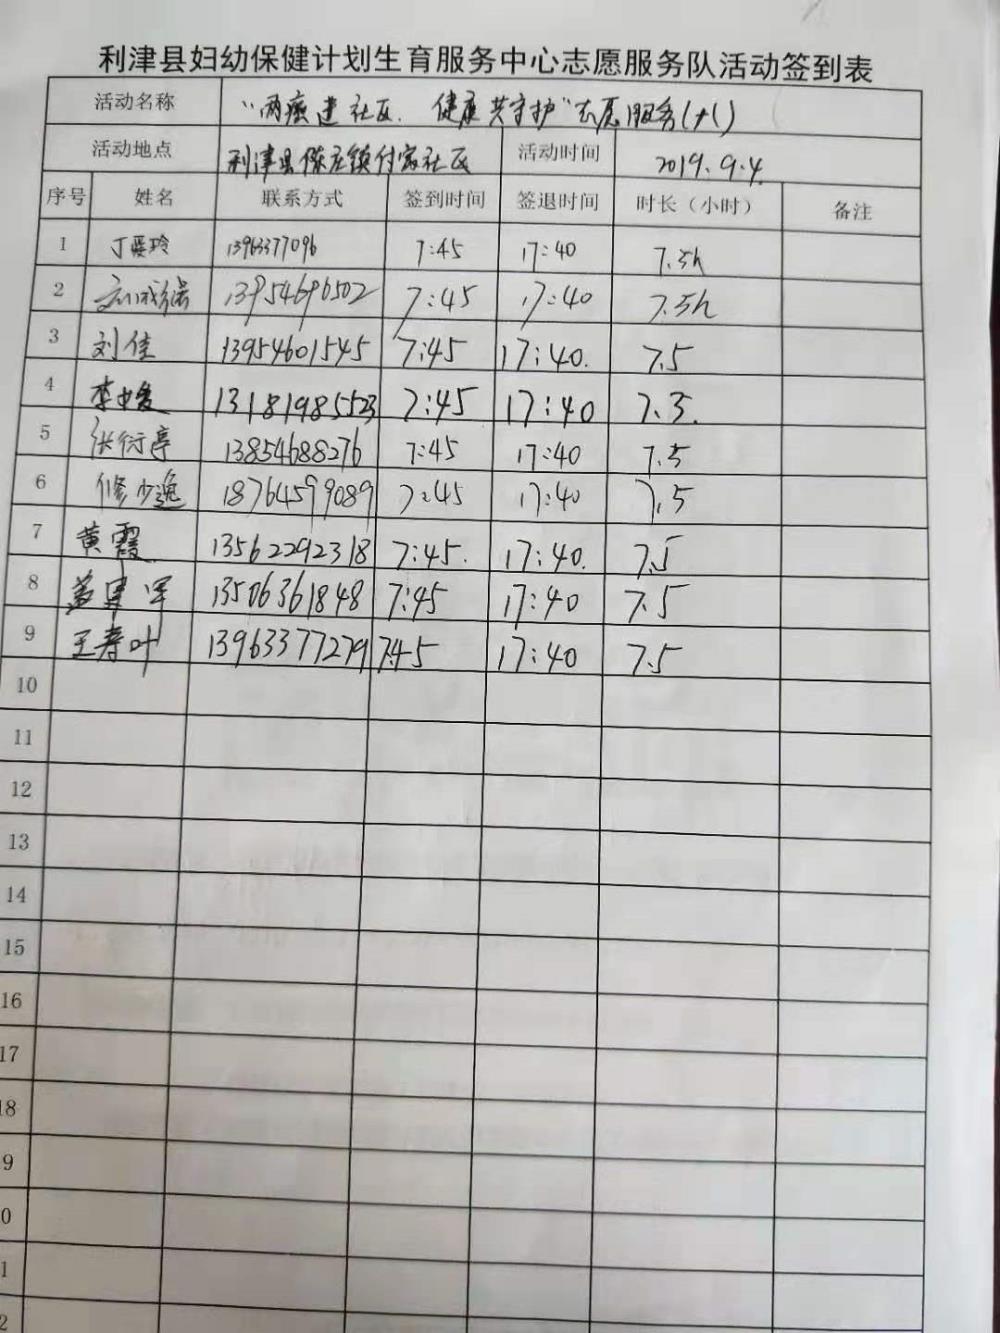 利津县妇幼保健计划生育服务中心志愿服务队活动签到表
活动名称 "两癌进社区、健康共守护"志愿服务(十八)
活动地点 利津县陈庄镇付家社区 活动时间 2019.9.4
序号 姓名 联系方式 签到时间 签退时间 时长（小时） 备注
1 丁爱玲 13963377096 7:45 17:40 7.5h
2 13954696502 7:45 17:40 7.5h
3 刘佳 13954601545 7:45 17:40. 7.5
4 13181985523 7:45 17:40 7.5.
5 张衍亭 13854688276 7:45 17:40 7.5
6 修少逸 18764599089 7:45 17:40 7.5
7 黄霞 13562292318 7:45. 17:40. 7.5
8 13506361848 7:45 17:40 7.5
9 王寿叶 13963377279 7:45 17:40 7.5
10
11
12
13
14
15
16
17
18
9
0
1
2